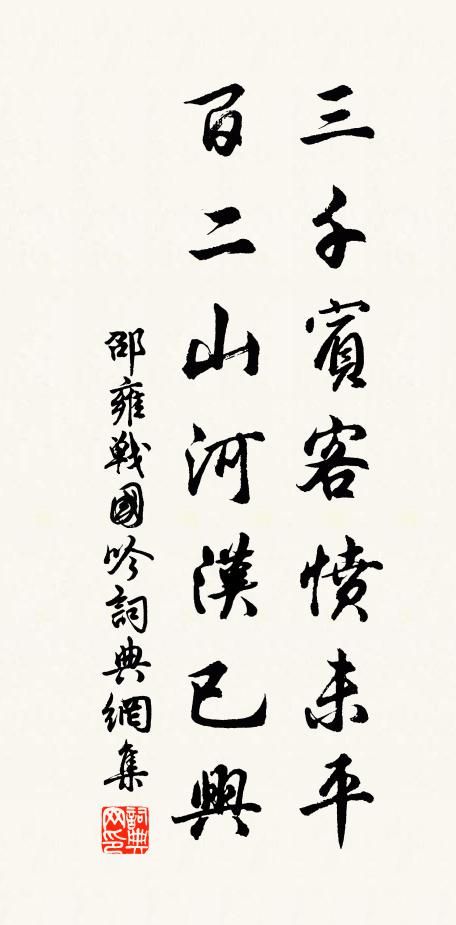 三千賓客憤未平
百二山河漢已興
邵雍戰國吟詞典網集
詞典网印